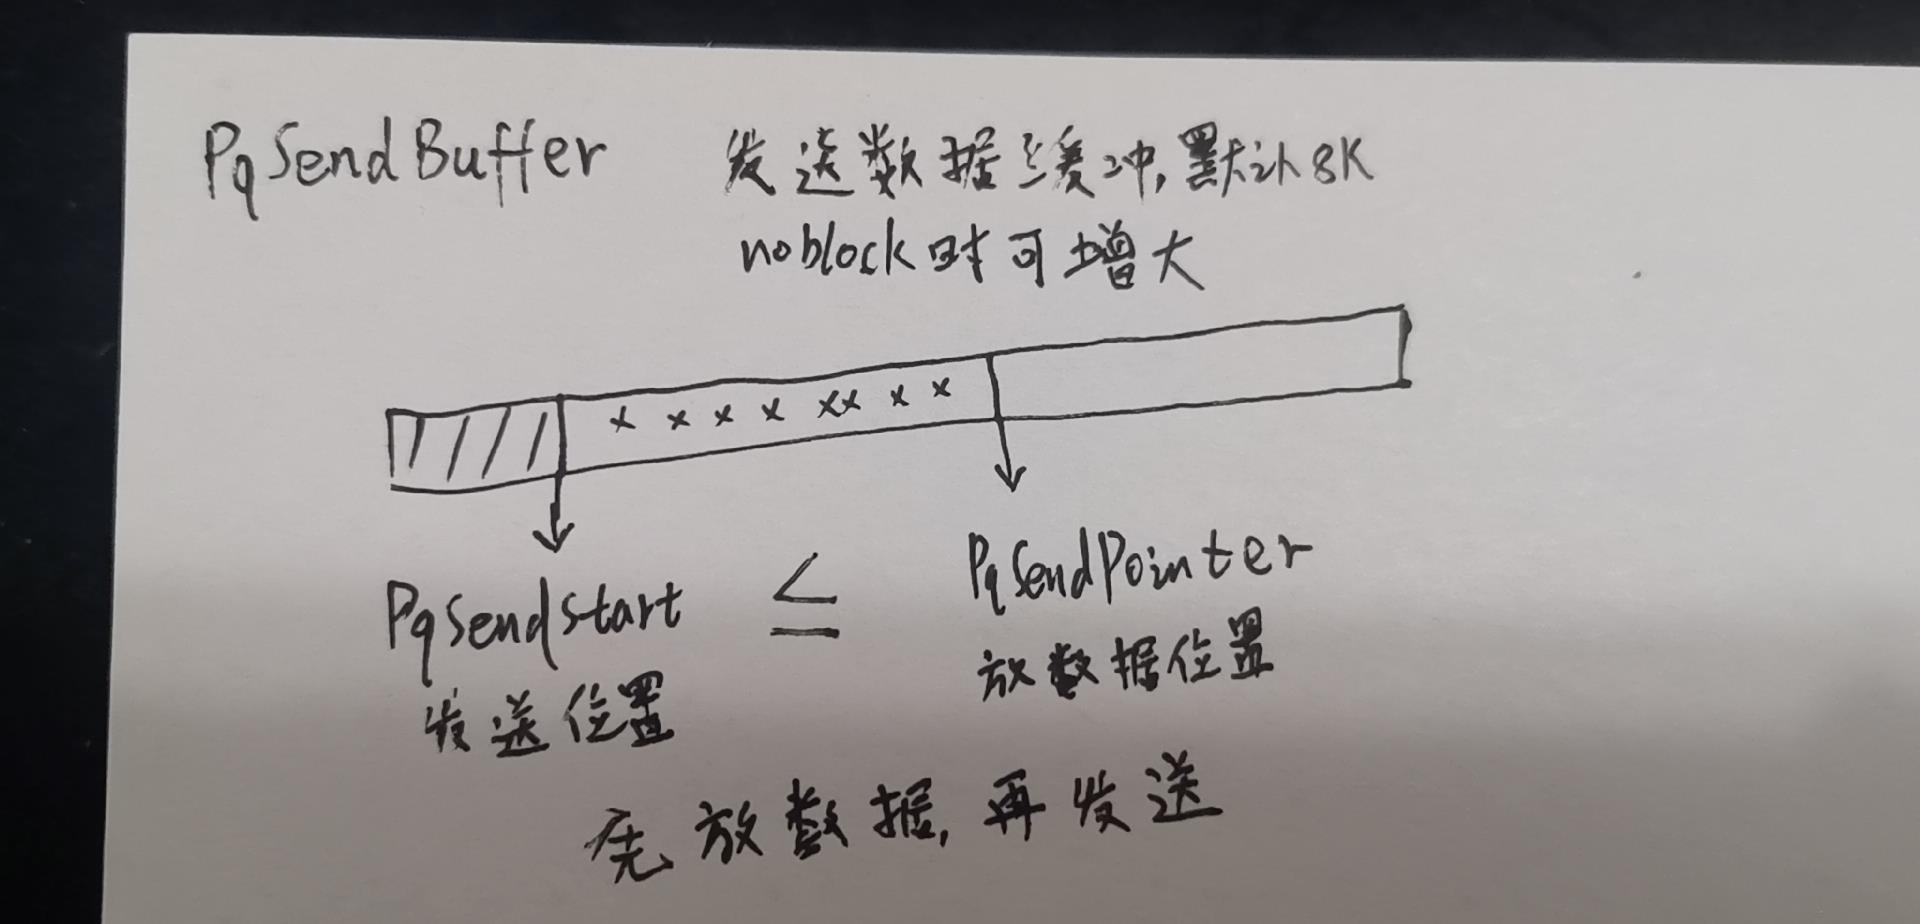 PqSendBuffer 发送数据缓冲,默认8K
noblock时可增大
x x x x xx x x
PqSendStart ≤ PqSendPointer
发送位置 放数据位置
先放数据,再发送